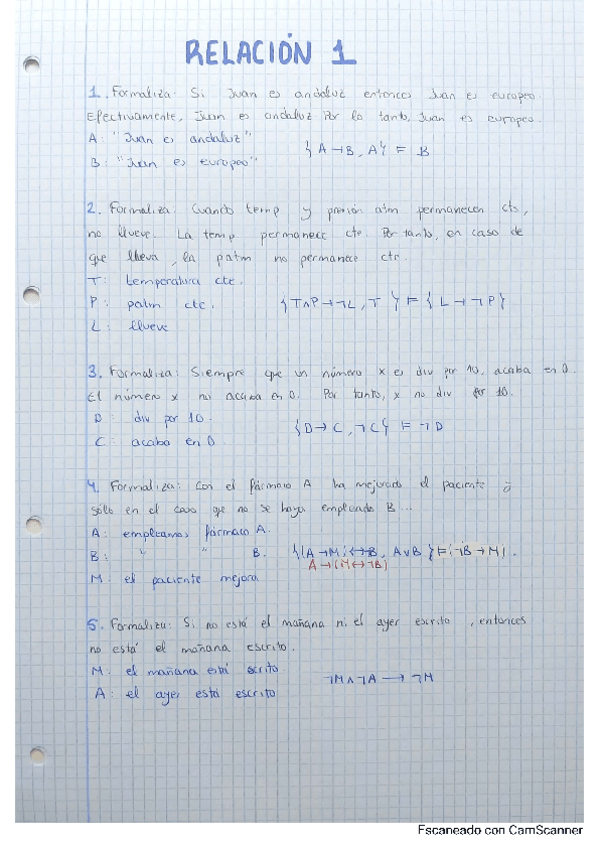 RELACIÓN 1
1. Formaliza: Si Juan es andaluz entonces Juan es europeo.
Efectivamente, Juan es andaluz. Por lo tanto, Juan es europeo.
A: "Juan es andaluz"
{A → B, A} ⊨ B
B: "Juan es europeo"
2. Formaliza: Cuando temp y presión atm permanecen cts,
no llueve. La temp permanece cte. Por tanto, en caso de
que llueva, la patm no permanece cte.
T: temperatura cte.
P: patm cte.
{T∧P → ¬L, T} ⊨ {L → ¬P}
L: llueve
3. Formaliza: Siempre que un número x es div por 10, acaba en 0.
El número x no acaba en 0. Por tanto, x no div por 10.
D: div por 10.
{D → C, ¬C} ⊨ ¬D
C: acaba en 0.
4. Formaliza: Con el fármaco A ha mejorado el paciente
sólo en el caso que no se haya empleado B...
A: empleamos fármaco A.
B: " " B.
{(A→M)↔B, A∨B} ⊨ {¬B → M}.
A → (M ↔ ¬B)
M: el paciente mejora
5. Formaliza: Si no está el mañana ni el ayer escrito, entonces
no está el mañana escrito.
M: el mañana está escrito.
A: el ayer está escrito
¬M ∧ ¬A → ¬M
Escaneado con CamScanner